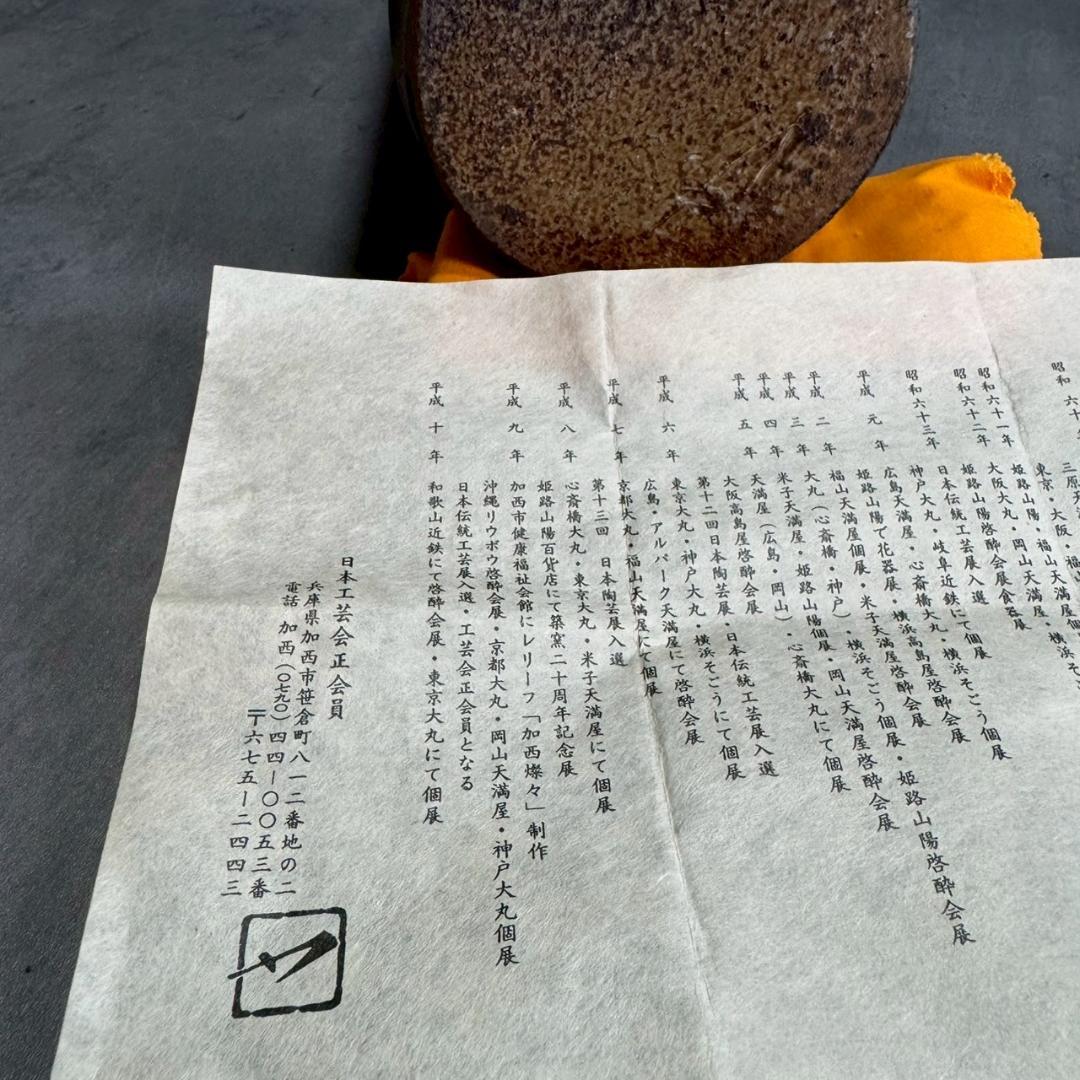 昭和六十
東京・大阪・福山天満屋個
昭和六十一年 大阪大丸・岡山天満屋・横浜そ
昭和六十二年 姫路山陽啓酔会展食器展
日本伝統工芸展入選
昭和六十三年 神戸大丸・岐阜近鉄にて個展
広島天満屋・心斎橋大丸・横浜そごう個展
姫路山陽で花器展・横浜高島屋啓酔会展
平成 元 年 福山天満屋個展・米子天満屋啓酔会展
平成 二 年 大丸（心斎橋・神戸）・横浜そごう個展・姫路山陽啓酔会展
平成 三 年 米子天満屋・姫路山陽個展・岡山天満屋啓酔会展
平成 四 年 天満屋（広島・岡山）・心斎橋大丸にて個展
平成 五 年 大阪高島屋啓酔会展
第十二回日本陶芸展・日本伝統工芸展入選
平成 六 年 東京大丸・神戸大丸・横浜そごうにて個展
広島・アルパーク天満屋にて啓酔会展
平成 七 年 京都大丸・福山天満屋にて個展
第十三回 日本陶芸展入選
平成 八 年 心斎橋大丸・東京大丸・米子天満屋にて個展
姫路山陽百貨店にて築窯二十周年記念展
平成 九 年 加西市健康福祉会館にレリーフ「加西燦々」制作
沖縄リウボウ啓酔会展・京都大丸・岡山天満屋・神戸大丸個展
日本伝統工芸展入選・工芸会正会員となる
平成 十 年 和歌山近鉄にて啓酔会展・東京大丸にて個展
日本工芸会正会員
兵庫県加西市笹倉町八一二番地の二
電話 加西（〇七九〇）四四ー〇〇五三番
〒六七五ー二四四三